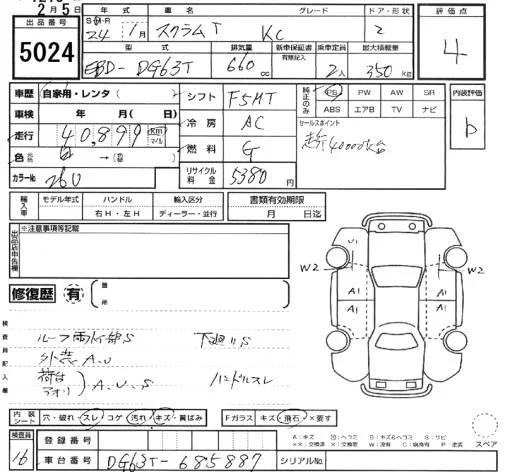 2月5日
出品番号
5024
年式 車名 グレード ドア・形状
S・H・R 24 1月 スクラムT KC 2
型式 排気量 新車保証書 有無記入 乗車定員 最大積載量
EBD-DG63T 660cc 2人 350kg
評価点
4
車歴 自家用・レンタ( )
シフト F5MT
純正のみ
PS PW AW SR
ABS エアB TV ナビ
内装評価
b
車検 年 月
冷房 AC
セールスポイント
走行 40,899 km マイル
燃料 G
色 元色 白 →(替 )
カラーNo. 26U
リサイクル料金 5380円
輸入車 モデル年式 ハンドル 輸入区分
年 右H・左H ディーラー・並行
書類有効期限
月 日迄
出品店申告欄
※注意事項等記載
修復歴 有 ( 箇所
W2 U U W2
A1 A1
A1 A1
検査員記入欄
ルーフ雨水部S 下廻りS
外装A、U
荷台 アオリ )A、U、S ハンドルスレ
内装シート 穴・破れ・スレ・コゲ・汚れ・キズ・黄ばみ
Fガラス キズ・飛石・×要す
検査員 16
登録番号
車台番号 DG63T-685887
シリアルNo.
スペア